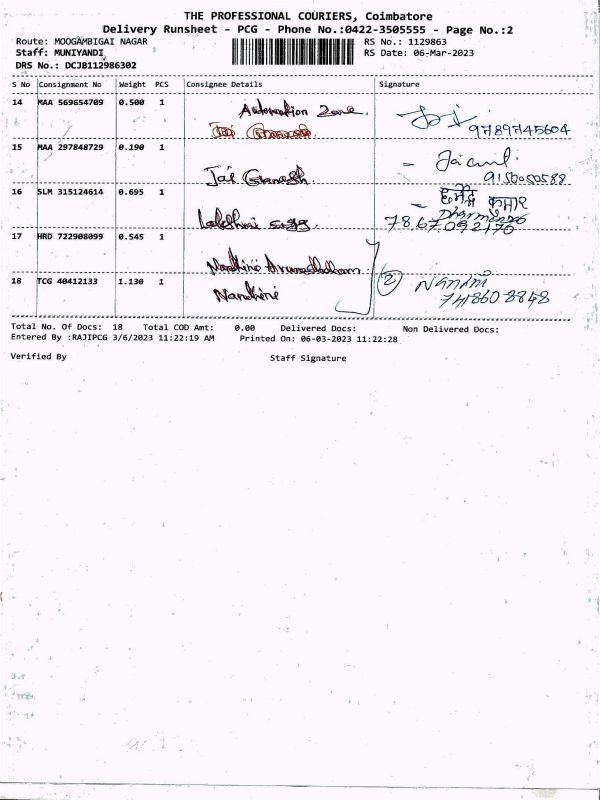 THE PROFESSIONAL COURIERS, Coimbatore
Delivery Runsheet - PCG - Phone No.:0422-3505555 - Page No.:2
Route: MOOGAMBIGAI NAGAR RS No.: 1129863
Staff: MUNIYANDI RS Date: 06-Mar-2023
DRS No.: DCJB112986302
S No Consignment No Weight PCS Consignee Details Signature
14 MAA 569654709 0.500 1 Automation Zone.
Jai Ganesh 9789745604
15 MAA 297848729 0.190 1
Jai Ganesh. 9150050588
16 SLM 315124614 0.695 1 कुमार
Lakshmi 7867092170
17 HRD 722908099 0.545 1
Nandhini
18 TCG 40412133 1.130 1 Nandhini (2) Nandini
Total No. Of Docs: 18 Total COD Amt: 0.00 Delivered Docs: Non Delivered Docs:
Entered By :RAJIPCG 3/6/2023 11:22:19 AM Printed On: 06-03-2023 11:22:28
Verified By Staff Signature